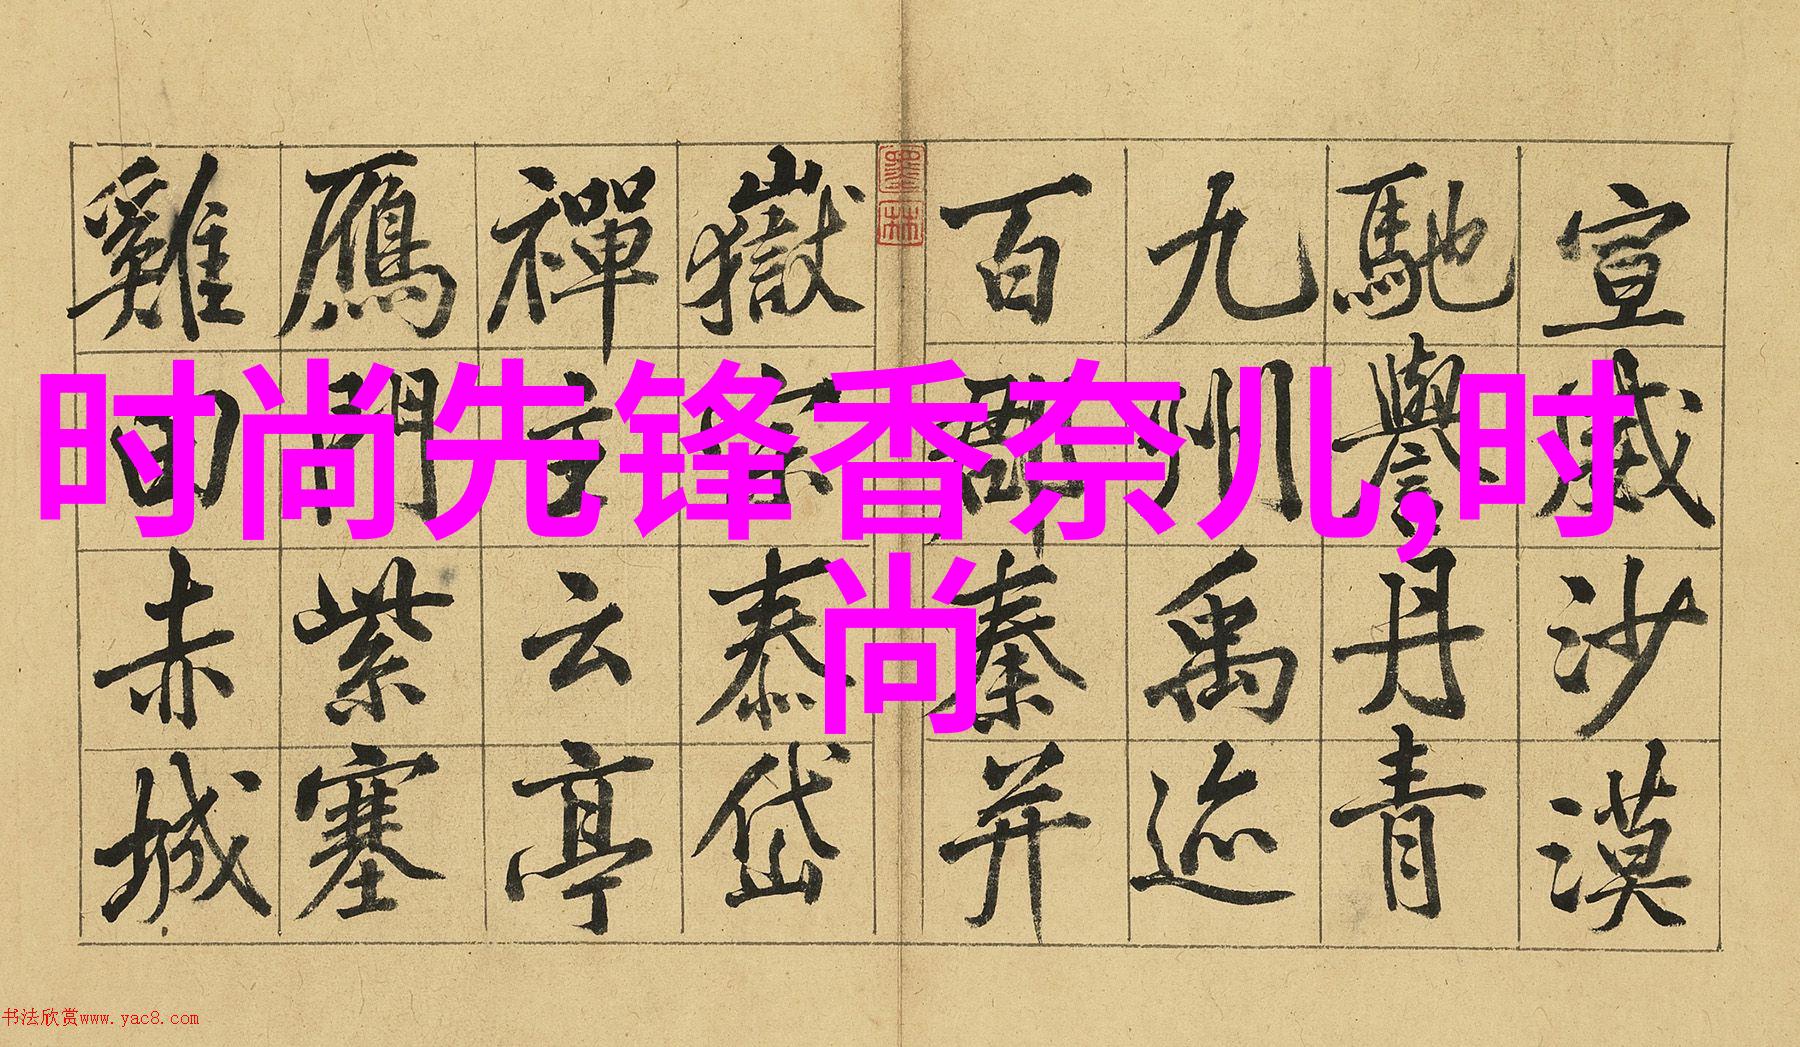 时尚先锋香奈儿,时
尚
宣威沙漠
馳譽丹青
九州禹迹
百郡秦并
嶽宗泰岱
禪主云亭
鴈門紫塞
雞田赤城
墨林
书法欣赏www.yac8.com